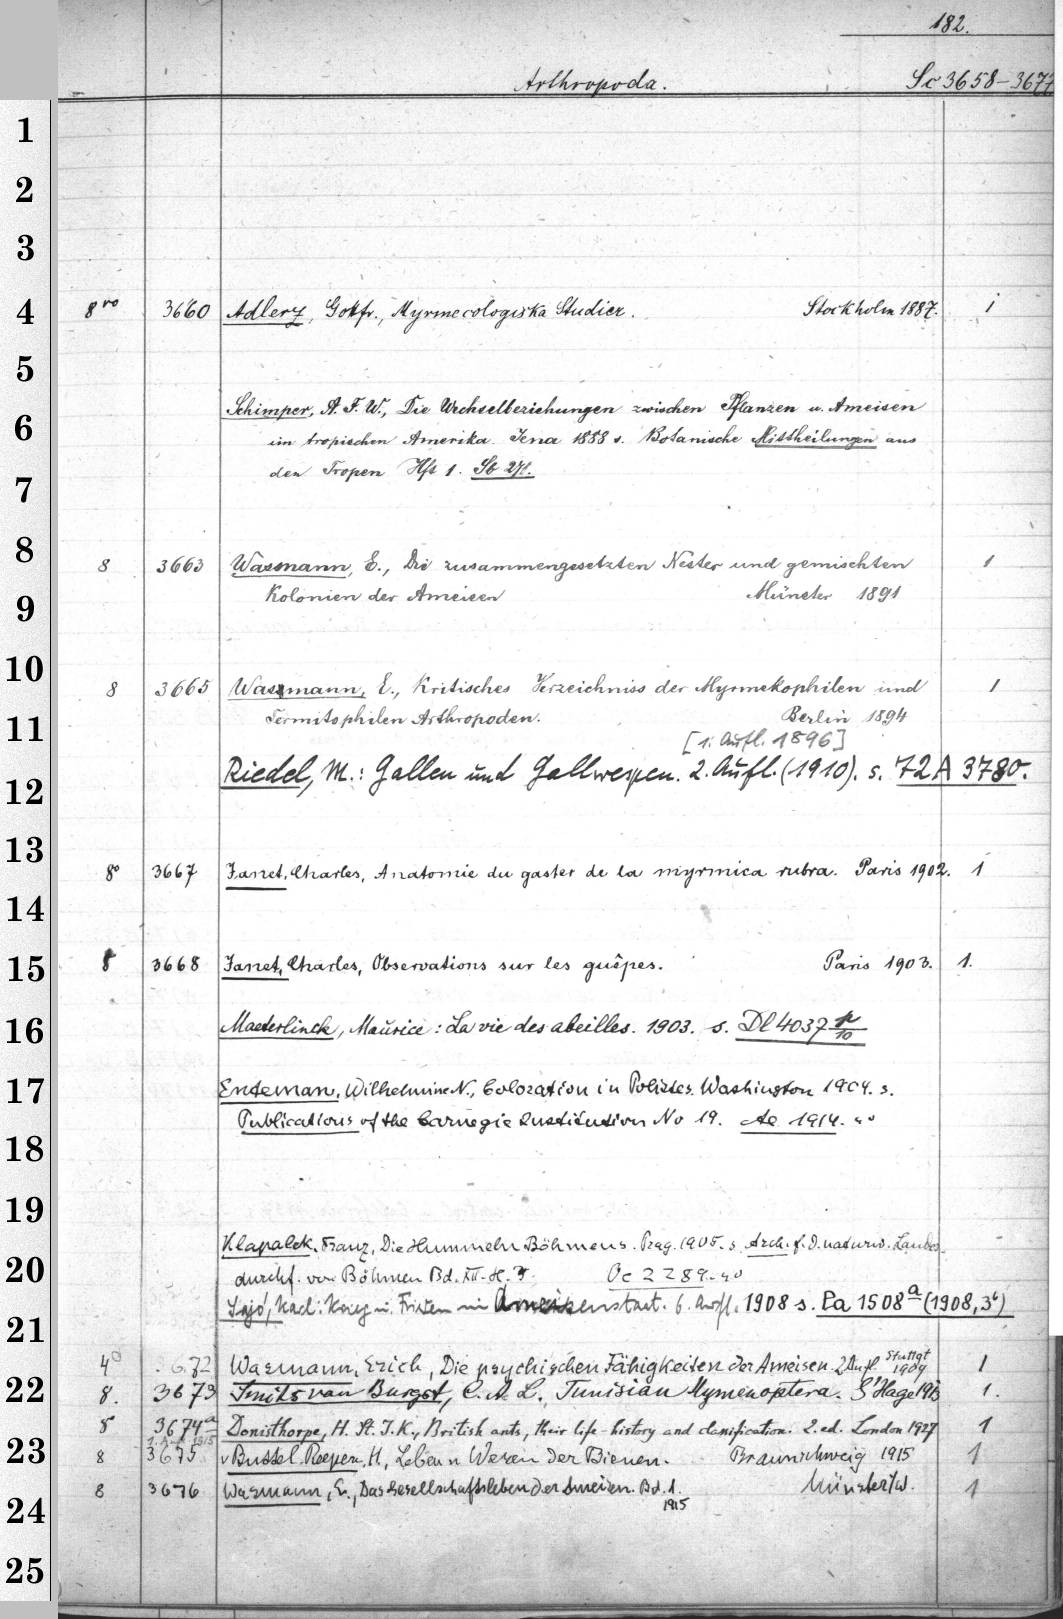 182.
Arthropoda. Sc 3658-3677
1
2
3
4 8vo 3660 Adlerz, Gottfr., Myrmecologiska Studier. Stockholm 1887. 1
5
Schimper, A. F. W., Die Wechselbeziehungen zwischen Pflanzen u. Ameisen
6 im tropischen Amerika. Jena 1888 s. Botanische Mittheilungen aus
den Tropen Hft 1.
7
8 8 3663 Wasmann, E., Die zusammengesetzten Nester und gemischten 1
9 Kolonien der Ameisen Münster 1891
10 8 3665 Wasmann, E., Kritisches Verzeichniss der Myrmekophilen und 1
11 Termitophilen Arthropoden. Berlin 1894
[1. Aufl. 1896]
12 Riedel, M.: Gallen und Gallwespen. 2. Aufl. (1910). s. 72 A 3780.
13 8o 3667 Janet, Charles, Anatomie du gaster de la myrmica rubra. Paris 1902. 1
14
15 8 3668 Janet, Charles, Observations sur les guêpes. Paris 1903. 1.
16 Maeterlinck, Maurice: La vie des abeilles. 1903. s. Dl 4037
17 Enteman, Wilhelmine N., Coloration in Polistes. Washington 1904. s.
Publications of the Carnegie Institution No 19. Ae 1914.
18
19
Klapalek, Franz, Die Hummeln Böhmens. Prag. 1905. s. Arch. f. d. naturw. Landes-
20 durchf. von Böhmen Bd. XII. Oc 2289.
Sajó, Karl: Krieg u. Frieden im Ameisenstaat. 6. Aufl. 1908 s. Pa 1508a (1908,3)
21
4o 672 Wasmann, Erich, Die psychischen Fähigkeiten der Ameisen. 2. Aufl. Stuttgt 1909 1
22 8. 3673 Smits van Burgst, C. A. L., Tunisian Hymenoptera. S'Hage 1913 1.
8 3674a Donisthorpe, H. St. J. K., British ants, their life-history and classification. 2. ed. London 1927 1
1. A. 1915
23 8 3675 v Buttel-Reepen, H, Leben u Wesen der Bienen. Braunschweig 1915 1
8 3676 Wasmann, E., Das Gesellschaftsleben der Ameisen. Bd. 1. Münster i/W. 1
24 1915
25